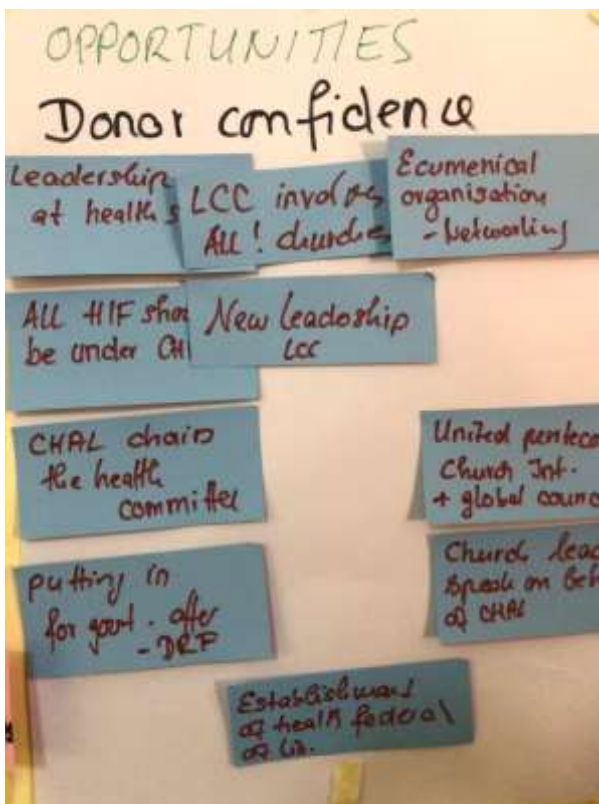 OPPORTUNITIES
Donor confidence
Leadership
at health
LCC involves
ALL! churches
Ecumenical
organisation
- Networking
ALL HIF
be under
New leadership
LCC
CHAL chairs
the health
committee
United
Church Int.
+ global
putting in
for govt. offer
- DRF
Church
Speak on
of CHAL
Establishment
of health federal
of Lib.